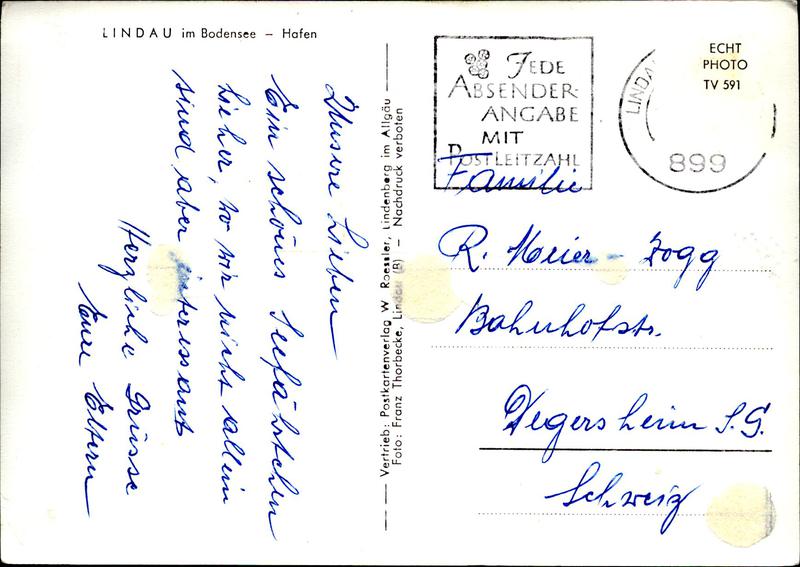 LINDAU im Bodensee – Hafen
Unsere Lieben
Ein schönes Seefährtchen
hieher, wo wir nicht allein
sind aber interessant
Herzliche Grüsse
Eure Eltern
Vertrieb: Postkartenverlag W. Roessler, Lindenberg im Allgäu
Foto: Franz Thorbecke, Lindau (B) – Nachdruck verboten
JEDE
ABSENDER-
ANGABE
MIT
POSTLEITZAHL
LINDAU
899
ECHT
PHOTO
TV 591
Familie
R. Meier - Zogg
Bahnhofstr.
Degersheim S.G.
Schweiz